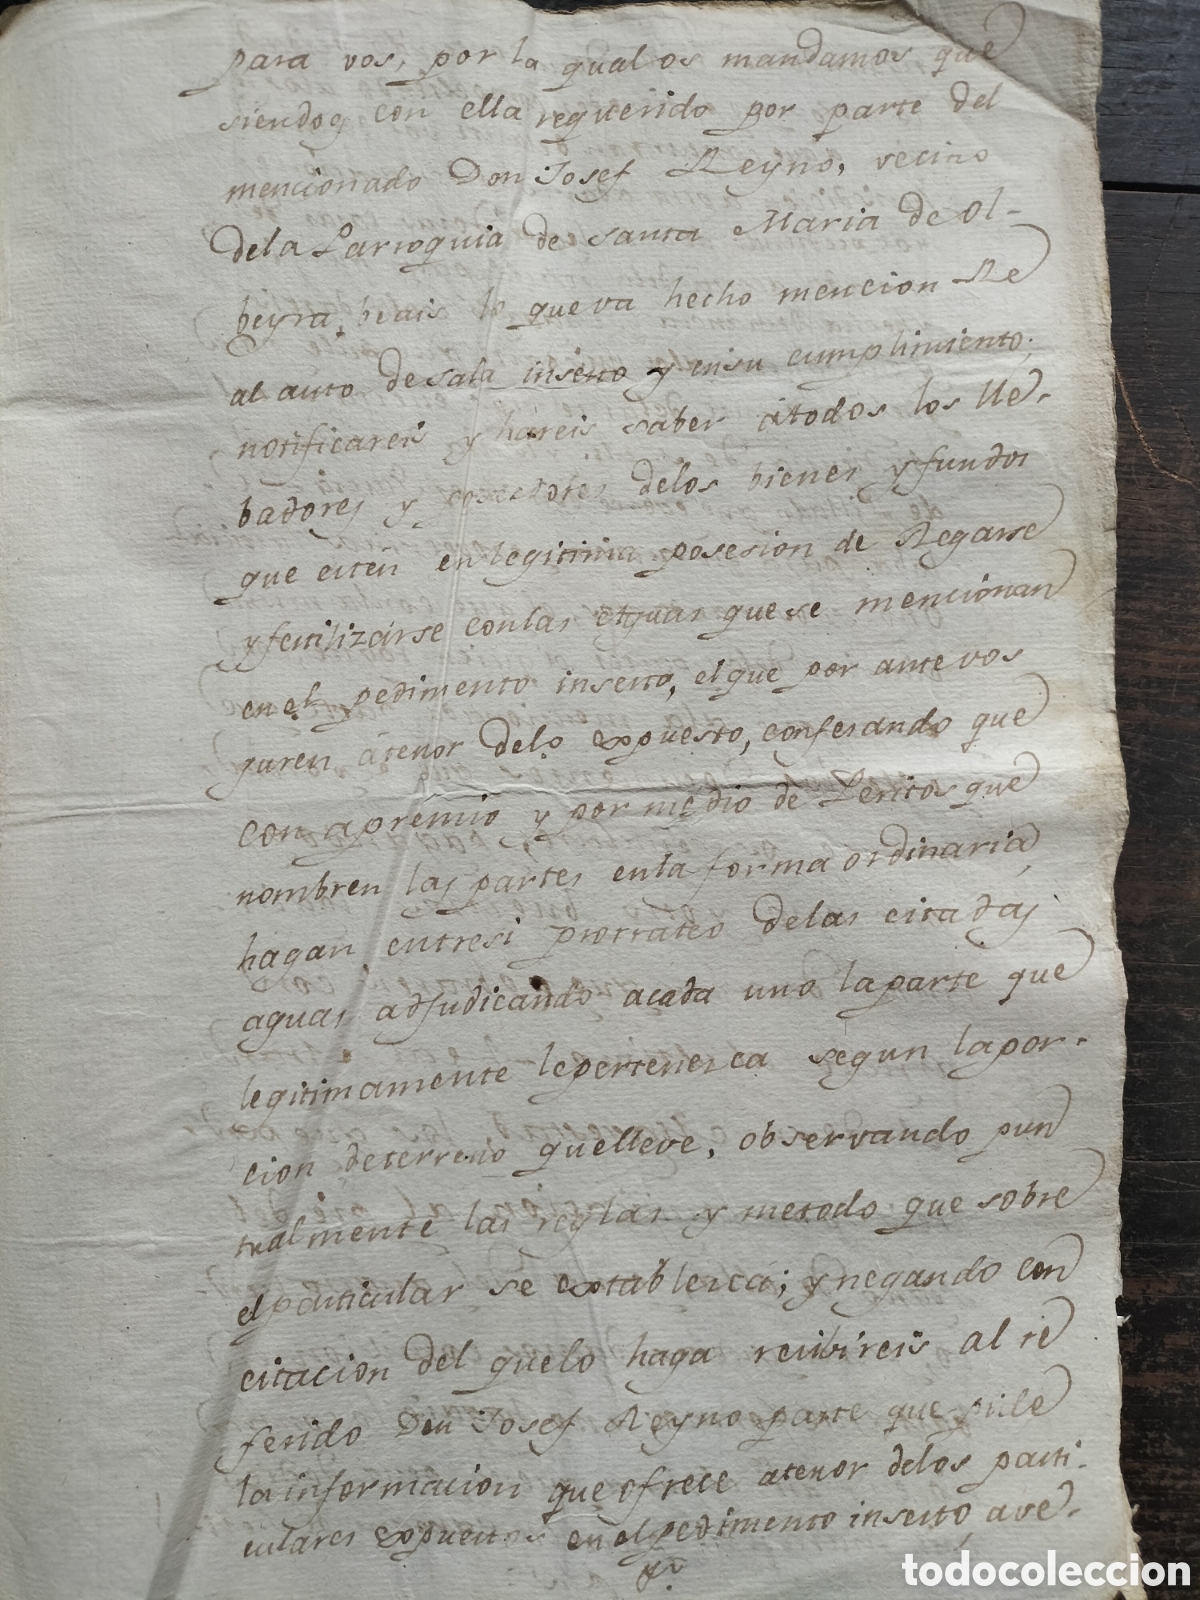 para vos, por la qual os mandamos que
siendoos con ella requerido por parte del
mencionado Don Josef Reyno, vecino
dela Parroquia de Santa Maria de Ol-
beyra, beais lo que va hecho mencion Re
al auto de sala inserto y ensu cumplimiento,
notificareis y hareis saber átodos los lle-
badores y posedores delos bienes y fundos
que estén en legitima posesion de Regarse
y fertilizarse conlas aguas que se mencionan
en el pedimento inserto, el que por ante vos
juren átenor delo expuesto, confesando que
con apremio y por medio de Peritos que
nombren las partes enla forma ordinaria,
hagan entresi prorrateo delas citadas
aguas adjudicando acada uno la parte que
legitimamente le pertenesca segun la por-
cion deterreno quelleve, observando pun
tualmente las reglas y metodo que sobre
el particular se extablesca; y negando con
citacion del quelo haga recibireis al re
ferido Don Josef Reyno parte que pide
la informacion que ofrece atenor delos parti-
culares expuestos en el pedimento inserto, ave-
todocoleccion